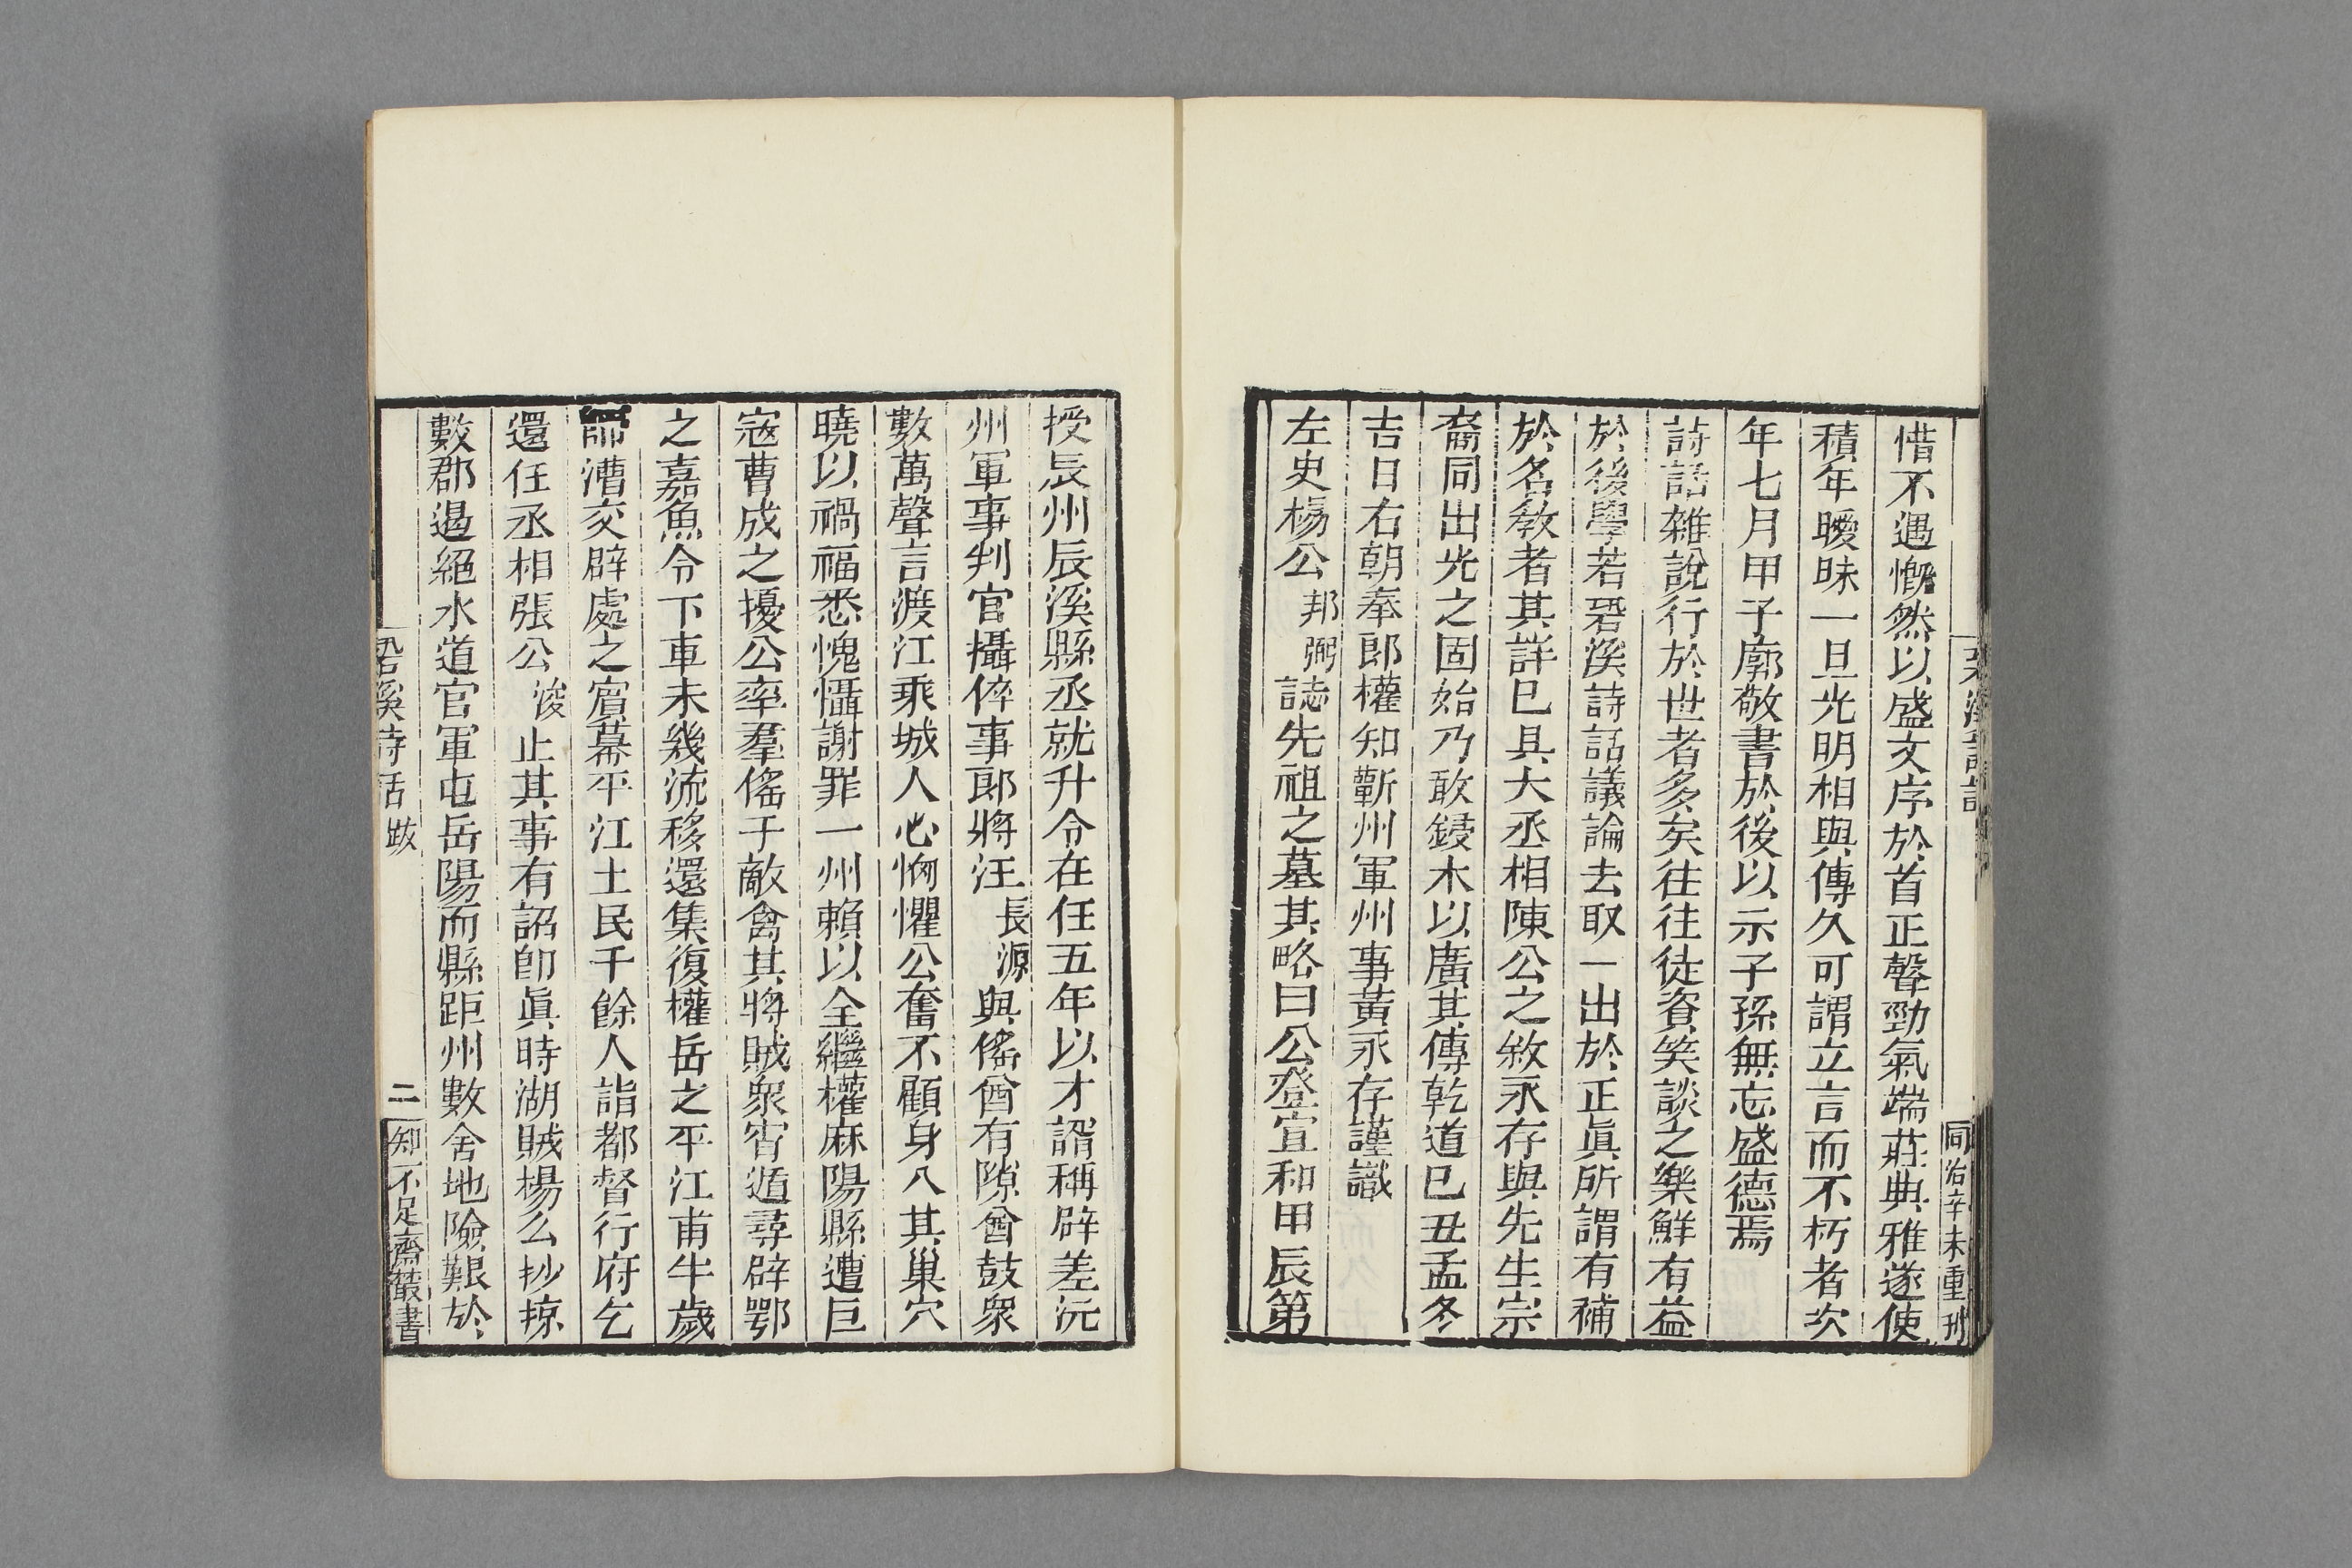 同治辛未重刊
惜不遇慨然以盛文序於首正聲勁氣端莊典雅遂使
積年曖昧一旦光明相與傳久可謂立言而不朽者次
年七月甲子廓敬書於後以示子孫無忘盛德焉
詩話雜說行於世者多矣往往徒資笑談之樂鮮有益
於後學若䂬溪詩話議論去取一出於正眞所謂有補
於名敎者其詳已具大丞相陳公之敘永存與先生宗
裔同出光之固始乃敢鋟木以廣其傳乾道己丑孟冬
吉日右朝奉郎權知蘄州軍州事黃永存謹識
左史楊公邦弼誌先祖之墓其略曰公登宣和甲辰第
授辰州辰溪縣丞就升令在任五年以才諝稱辟差沅
州軍事判官攝倅事郞將汪長源與傜酋有隙酋鼓衆
數萬聲言渡江乘城人心恟懼公奮不顧身入其巢穴
曉以禍福悉愧懾謝罪一州賴以全繼權麻陽縣遭巨
寇曹成之擾公率羣傜于敵禽其將賊衆宵遁尋辟鄂
之嘉魚令下車未幾流移還集復權岳之平江甫半歲
帥漕交辟處之賓幕平江土民千餘人詣都督行府乞
還任丞相張公浚止其事有詔卽眞時湖賊楊么抄掠
數郡遏絕水道官軍屯岳陽而縣距州數舍地險艱於
䂬溪詩話 跋 二 知不足齋叢書